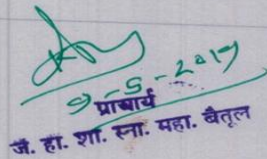 9-5-2019
प्राचार्य
जे. हा. शा. स्ना. महा. बैतूल